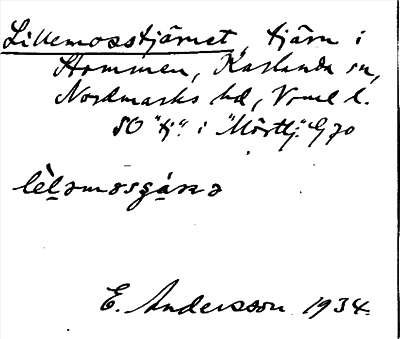 Lillemosstjärnet, tjärn i
Hommen, Karlanda sn,
Nordmarks hd, Vrml l.
SO "tj". i "Mörttj." G 70
E. Andersson 1934.